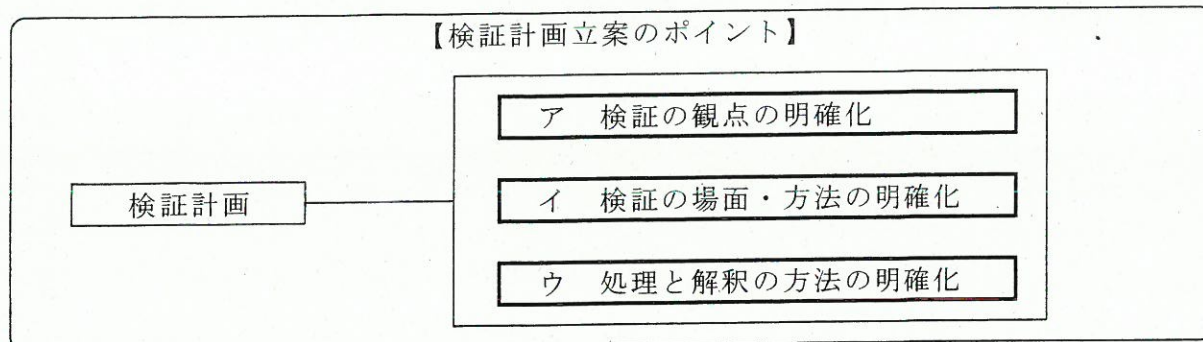 【検証計画立案のポイント】
ア 検証の観点の明確化
検証計画
イ 検証の場面・方法の明確化
ウ 処理と解釈の方法の明確化